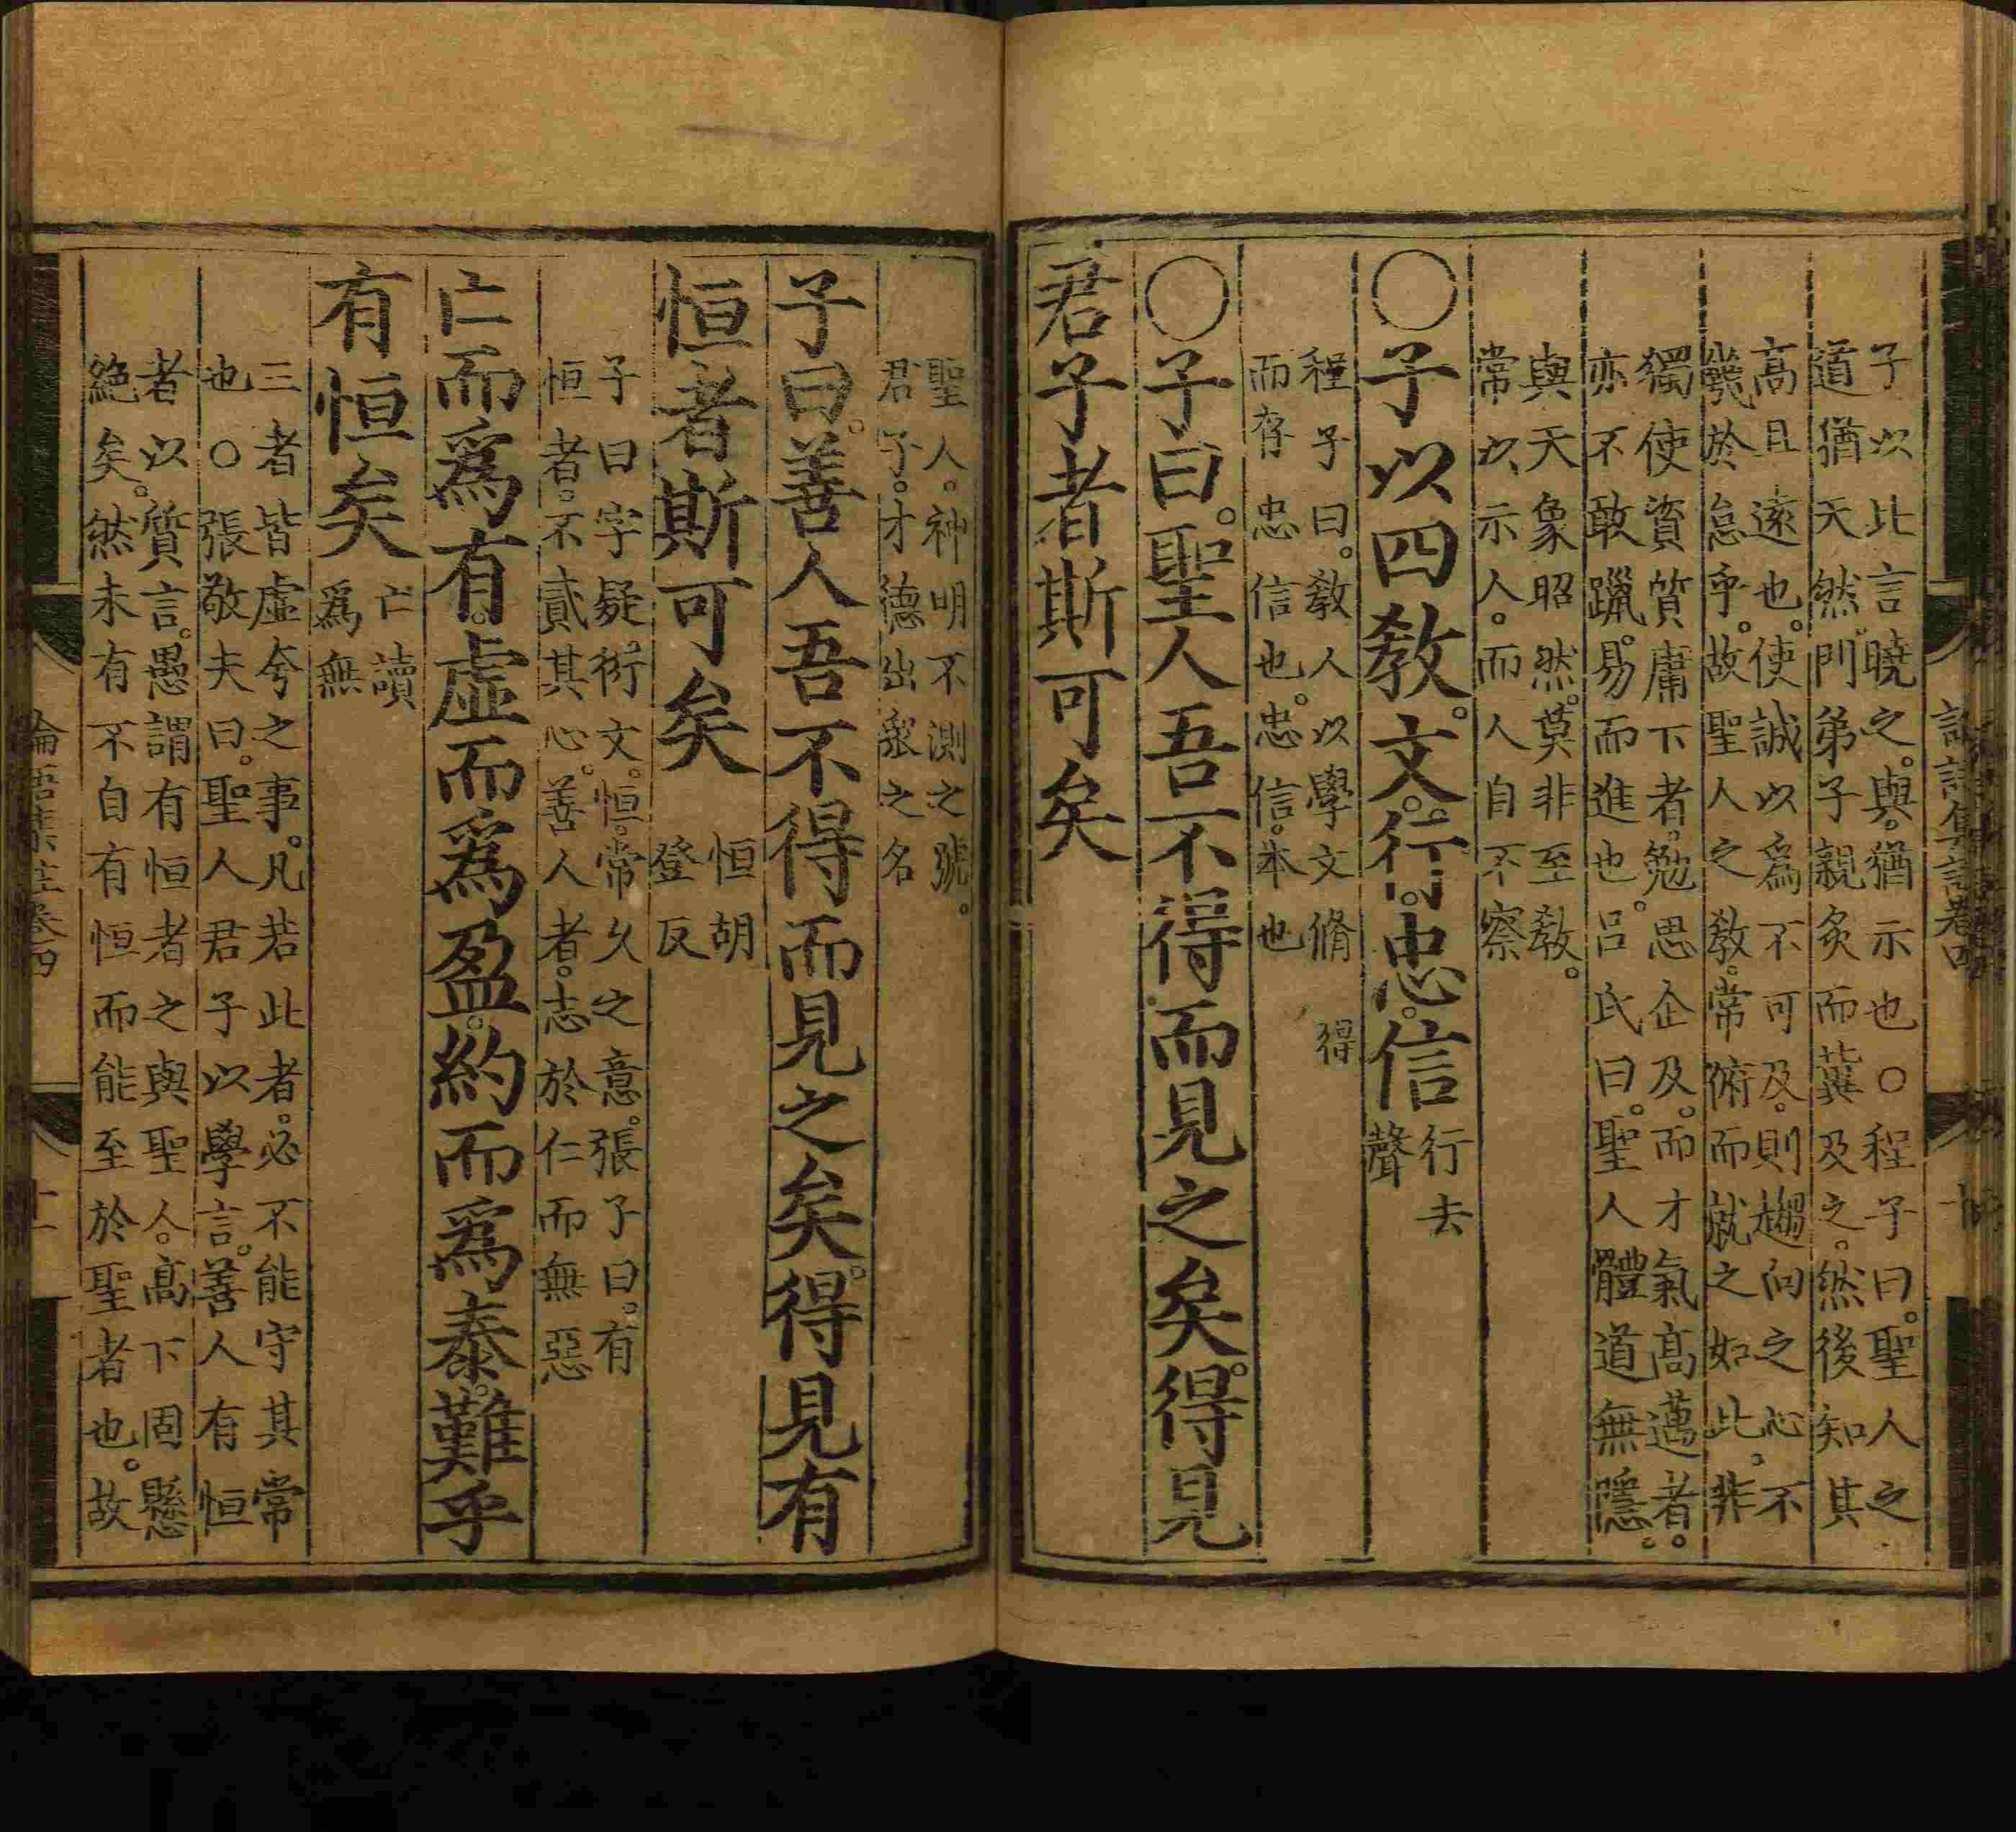 子以此言曉之。與。猶示也○程子曰。聖人之
道猶天然。門弟子親炙而冀及之。然後知其
高且遠也。使誠以爲不可及。則趨向之心不
幾於怠乎。故聖人之敎。常俯而就之如此。非
獨使資質庸下者。勉思企及。而才氣高邁者。
亦不敢躐。易而進也。呂氏曰。聖人體道無隱。
與天象昭然。莫非至敎。
常以示人。而人自不察
○子以四敎。文。行。忠。信
行去
聲
程子曰。敎人以學文脩
而存忠信也。忠信。本也
得
○子曰。聖人吾不得而見之矣。得見
君子者斯可矣
聖人。神明不測之號。
君子。才德出衆之名
子曰。善人吾不得而見之矣。得見有
恒者斯可矣
恒胡
登反
子曰字疑。衍文。恒。常久之意。張子曰。有
恒者。不貳其心。善人者。志於仁而無惡
亡而爲有。虛而爲盈。約而爲泰。難乎
有恒矣
亡讀
爲無
三者皆虛夸之事。凡若此者。必不能守其常
也○張敬夫曰。聖人君子以學言。善人有恒
者以質言。愚謂有恒者之與聖人。高下固懸
絶矣。然未有不自有恒而能至於聖者也。故
論語集註卷四
十一